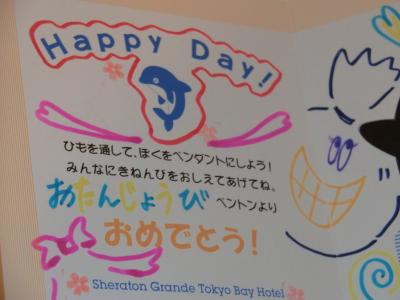 Happy Day!
ひもを通して、ぼくをペンダントにしよう!
みんなにきねんびをおしえてあげてね。
おたんじょうび ベントンより
おめでとう!
Sheraton Grande Tokyo Bay Hotel